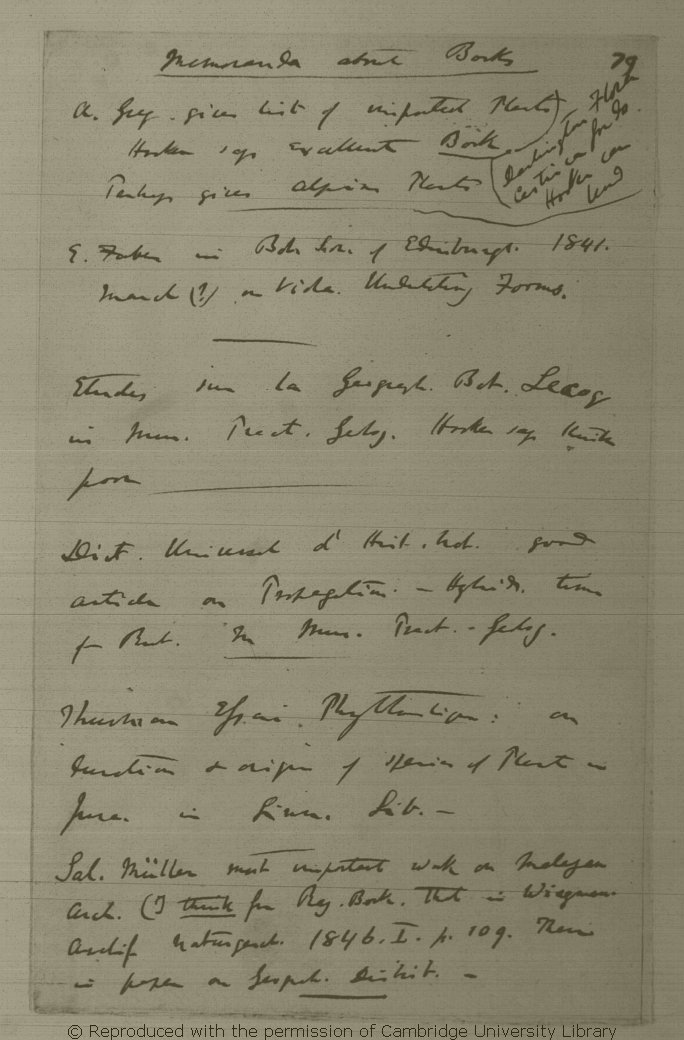 Memoranda about Books 79
A. Gray. gives list of imported Plants)
Hooker says excellent Book
Darlington Flora
Hooker can
lend
Perhaps gives Alpine Plants
E. Forbes in Bot. Soc. of Edinburgh. 1841.
March (?) on Viola. Undulating Forms.
Etudes sur la Geograph. Bot. Lecoq
in Mus. Pract. Geolog. Hooker says think
poor
Dict. Universel d' Hist. Nat. good
article on Propagation. – Hybrids. time
for Bot. In Mus. Pract. – Geolog.
Thurman Essai Phytostatique: on
duration & origin of species of Plant in
Jura. in Linn. Lib. –
Sal. Müller most important work on Malayan
Arch. (I think for Ray. Book. That in Wiegman.
Archif Naturgesch. 1846. I. p. 109. There
is paper on Geograph. Distrib. –
© Reproduced with the permission of Cambridge University Library